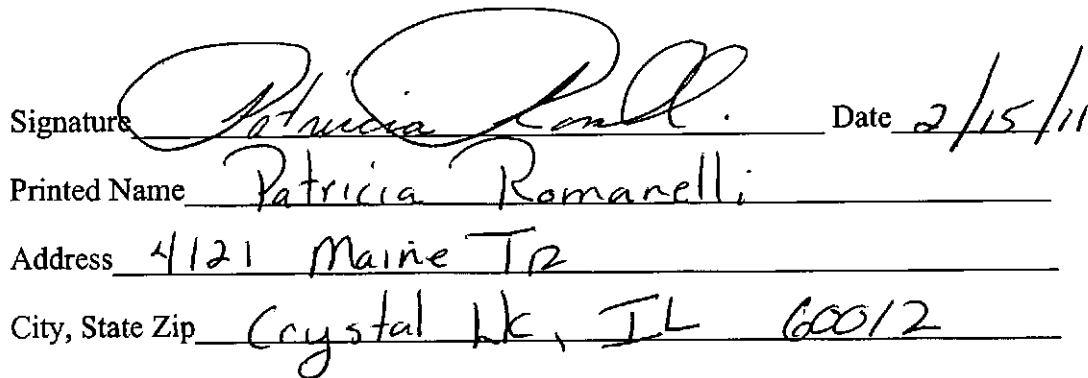 Signature Patricia Romell. Date 2/15/11
Printed Name Patricia Romanelli
Address 4121 Maine Tr
City, State Zip Crystal Lk, IL 60012